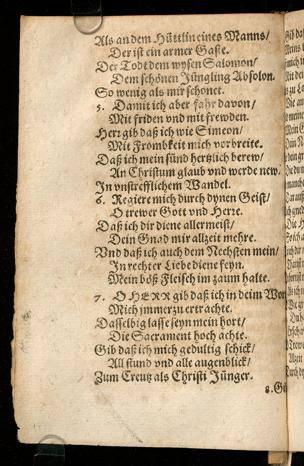 Als an dem Hüttlin eines Manns/
Der ist ein armer Gaste.
Der Todt dem wysen Salomon/
Dem schönen Jüngling Absolon.
So wenig als mir schonet.
5. Damit ich aber fahr davon/
Mit friden und mit frewden.
Herr gib daß ich wie Simeon/
Mit Frombkeit mich vorbreite.
Daß ich mein sünd hertzlich berew/
An Christum glaub vnd werde new.
In vnstrefflichem Wandel.
6. Regiere mich durch dynen Geist/
O trewer Gott vnd Herre.
Daß ich dir diene allermeist/
Dein Gnad mir allzeit mehre.
Vnd daß ich auch dem Nechsten mein/
In rechter Liebe diene feyn.
Mein böß Fleisch im zaum halte.
7. O HERR gib daß ich in deim Wort
Mich jmmerzu ertrachte.
Dasselbig lasse seyn mein hort/
Die Sacrament hoch achte.
Gib daß ich mich gedultig schick/
All stund vnd alle augenblick/
Zum Creutz als Christi Jünger.